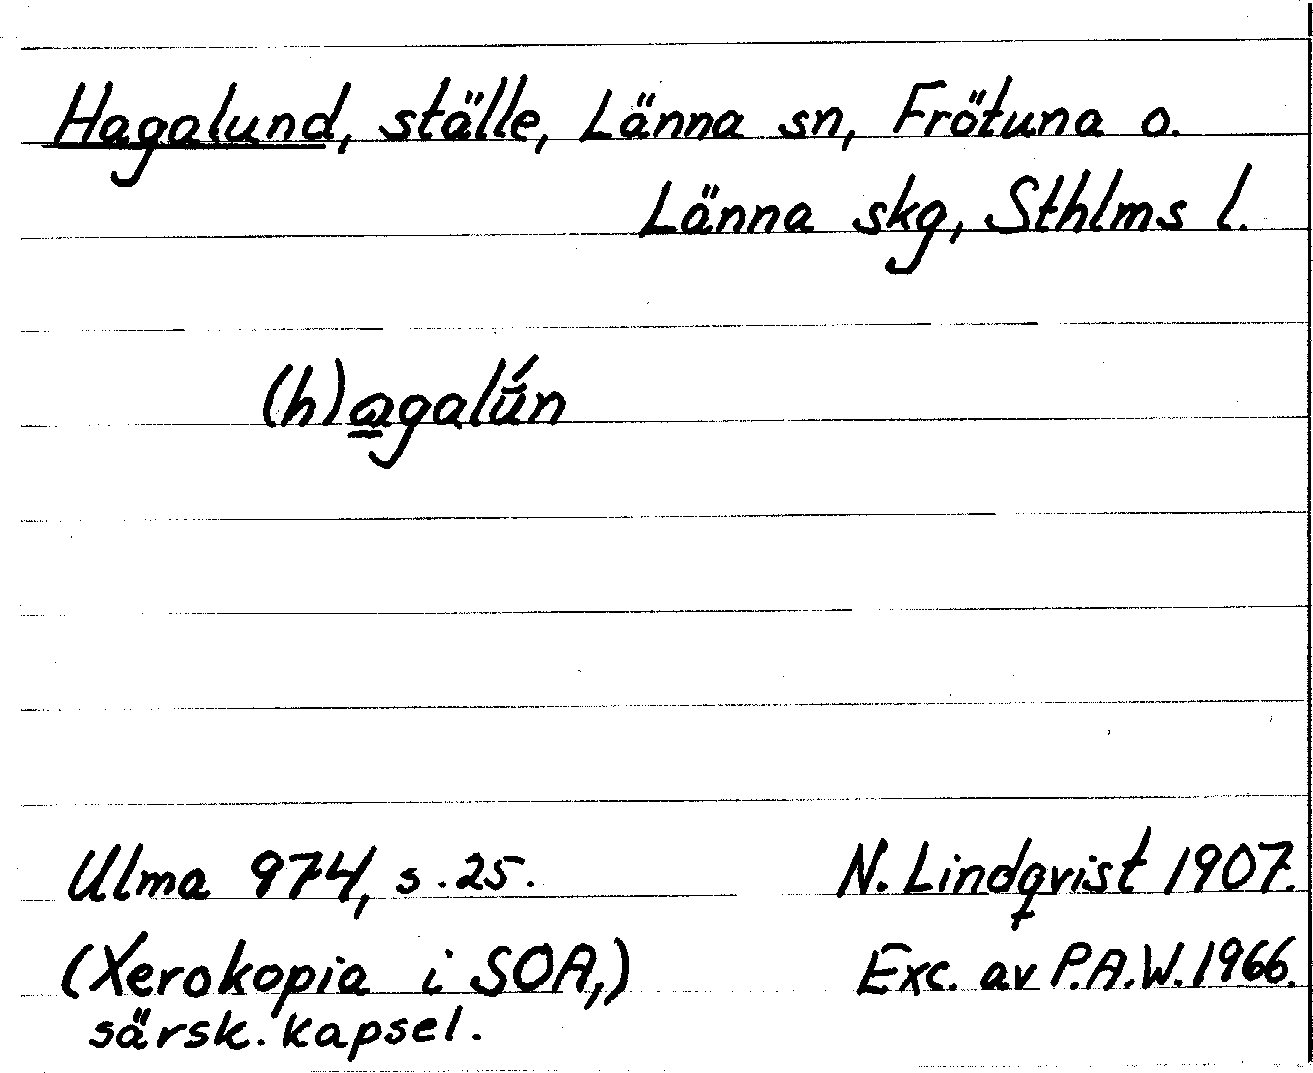 Hagalund, ställe, Länna sn, Frötuna o.
Länna skg, Sthlms l.
(h)a̲galú̆n
Ulma 974, s. 25. N. Lindqvist 1907.
(Xerokopia i SOA,) Exc. av P.A.W. 1966.
särsk. kapsel.